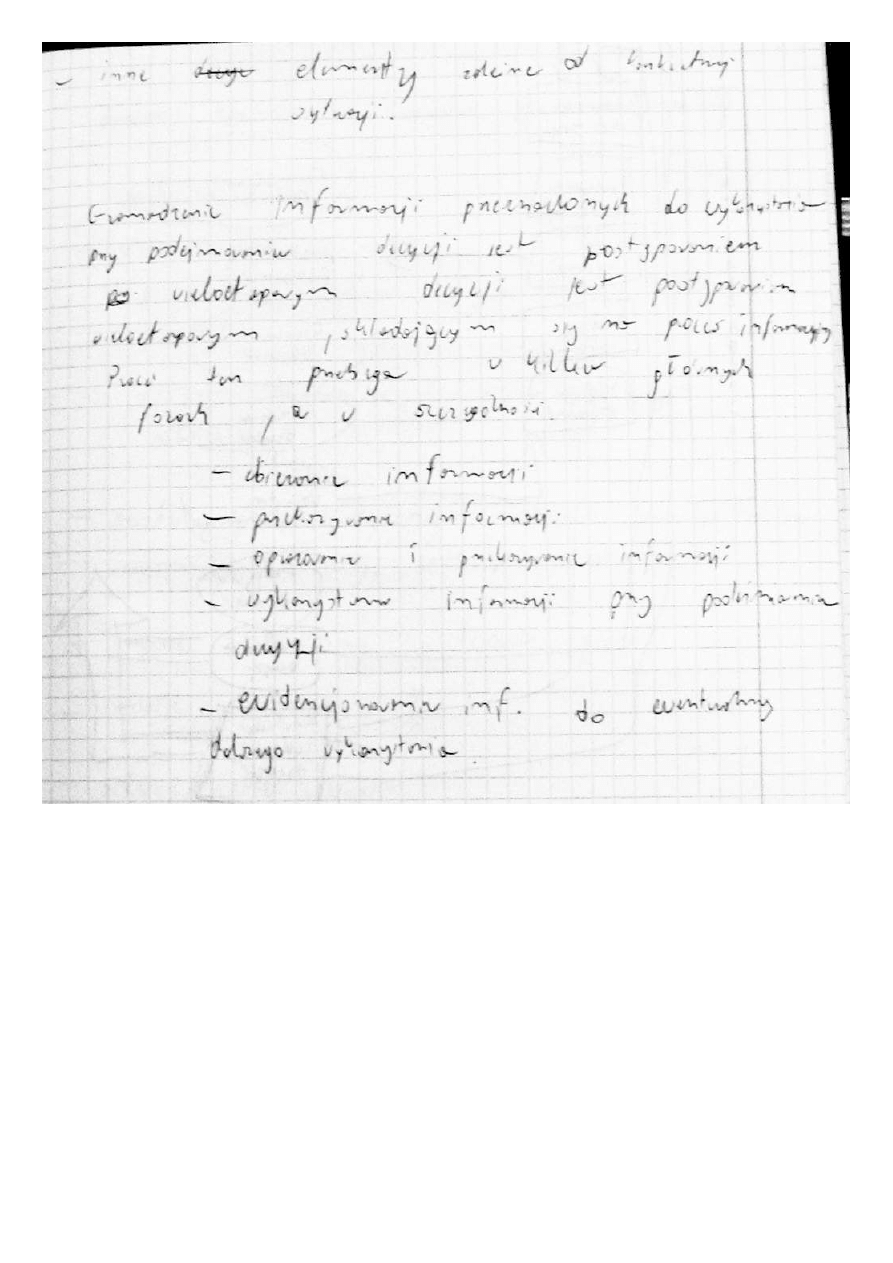 - inne elementy zależne od konkretnej
sytuacji.
Gromadzenie informacji przeznaczonych do wykorzystania
przy podejmowaniu decyzji jest postępowaniem
wieloetapowym decyzji jest postępowaniem
wieloetapowym, składającym się na proces informacyjny
Proces ten przebiega w kilku głównych
fazach, a w szczególności
- zbieranie informacji
- przekazywanie informacji
- opracowanie i przekazywanie informacji
- wykorzystanie informacji przy podejmowaniu
decyzji
- ewidencjonowanie inf. do ewentualnego
dalszego wykorzystania